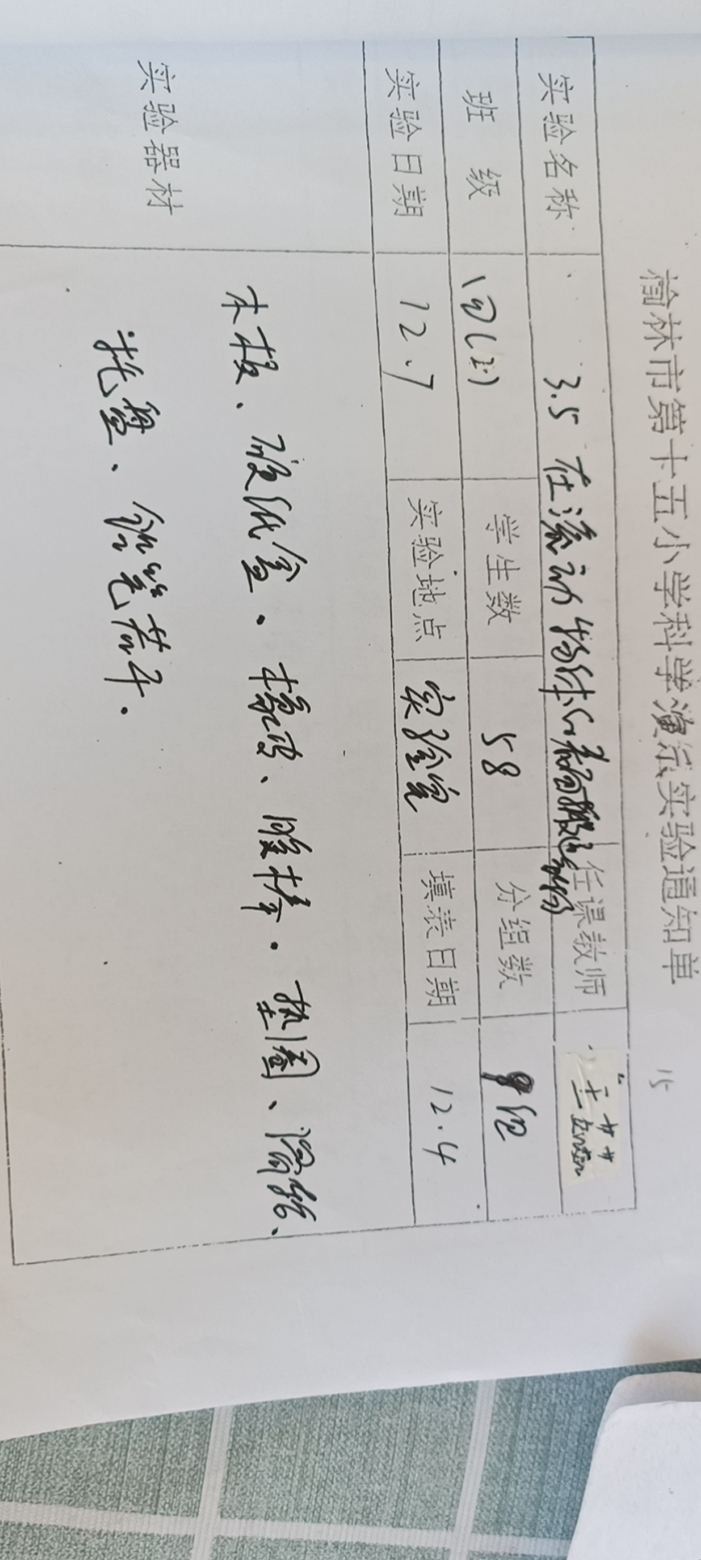 榆林市第十五小学科学演示实验通知单 15
实验名称 3.5 在流动物体 任课教师
班级 四(2) 学生数 58 分组数 组
实验日期 12.7 实验地点 实验室 填表日期 12.4
实验器材
木板、硬纸盒、橡皮、胶棒、垫圈、
托盘、铅笔若干.